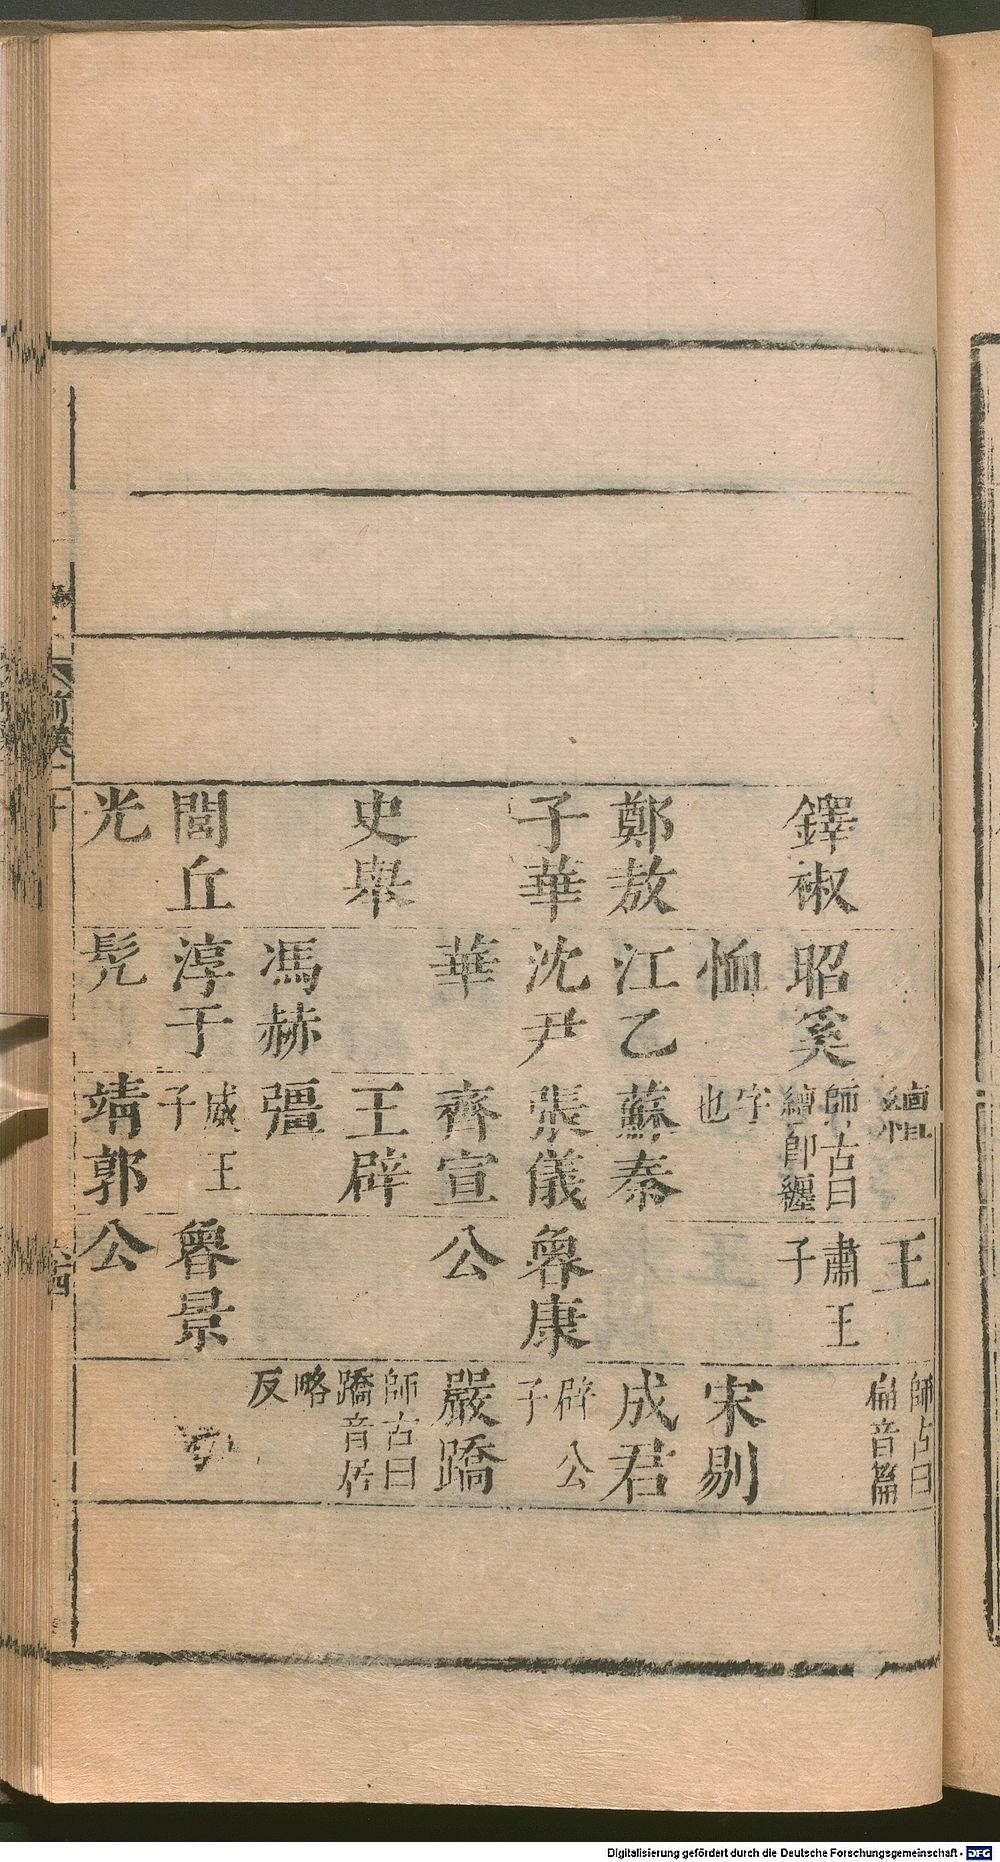 鐸椒
鄭敖
子華
史舉
閭丘
光
昭奚
恤
江乙
沈尹
華
馮赫
淳于
髠
師古曰
繪卽纏
字
也
蘇秦
張儀
齊宣
王辟
彊
威王
子
靖郭
王
肅王
子
魯康
公
魯景
公
師古曰
扁音篇
宋剔
成君
辟公
子
嚴蹻
師古曰
蹻音居
略
反
前漢
Digitalisierung gefördert durch die Deutsche Forschungsgemeinschaft - DFG